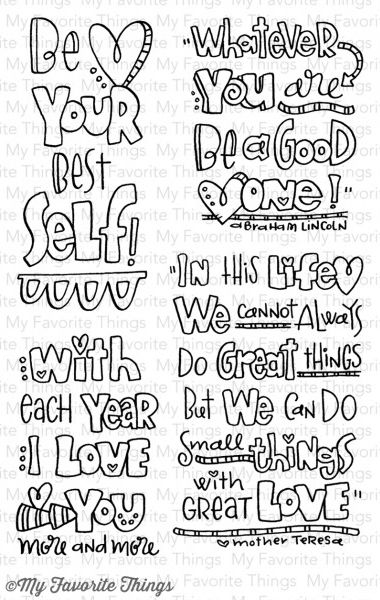 Be
YOUR
BEST
Self!
"Whatever
You are
Be a GOOD
ONE!"
aBRaHam LINCOLN
:With
each Year
:I LOVE
YOU
more and more
"IN this LiFe
We CANNOT Always
Do Great tHINGS
But We CaN DO
Small things
with
GREAT LOVE"
mother TeResa
©My Favorite Things